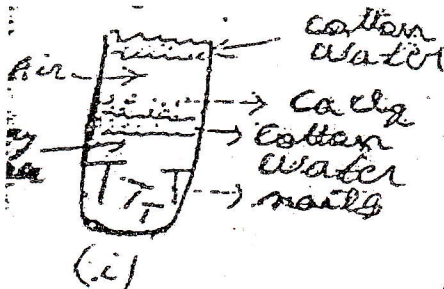 cotton
water
Air
Ca clg
cotton
water
nails
(i)